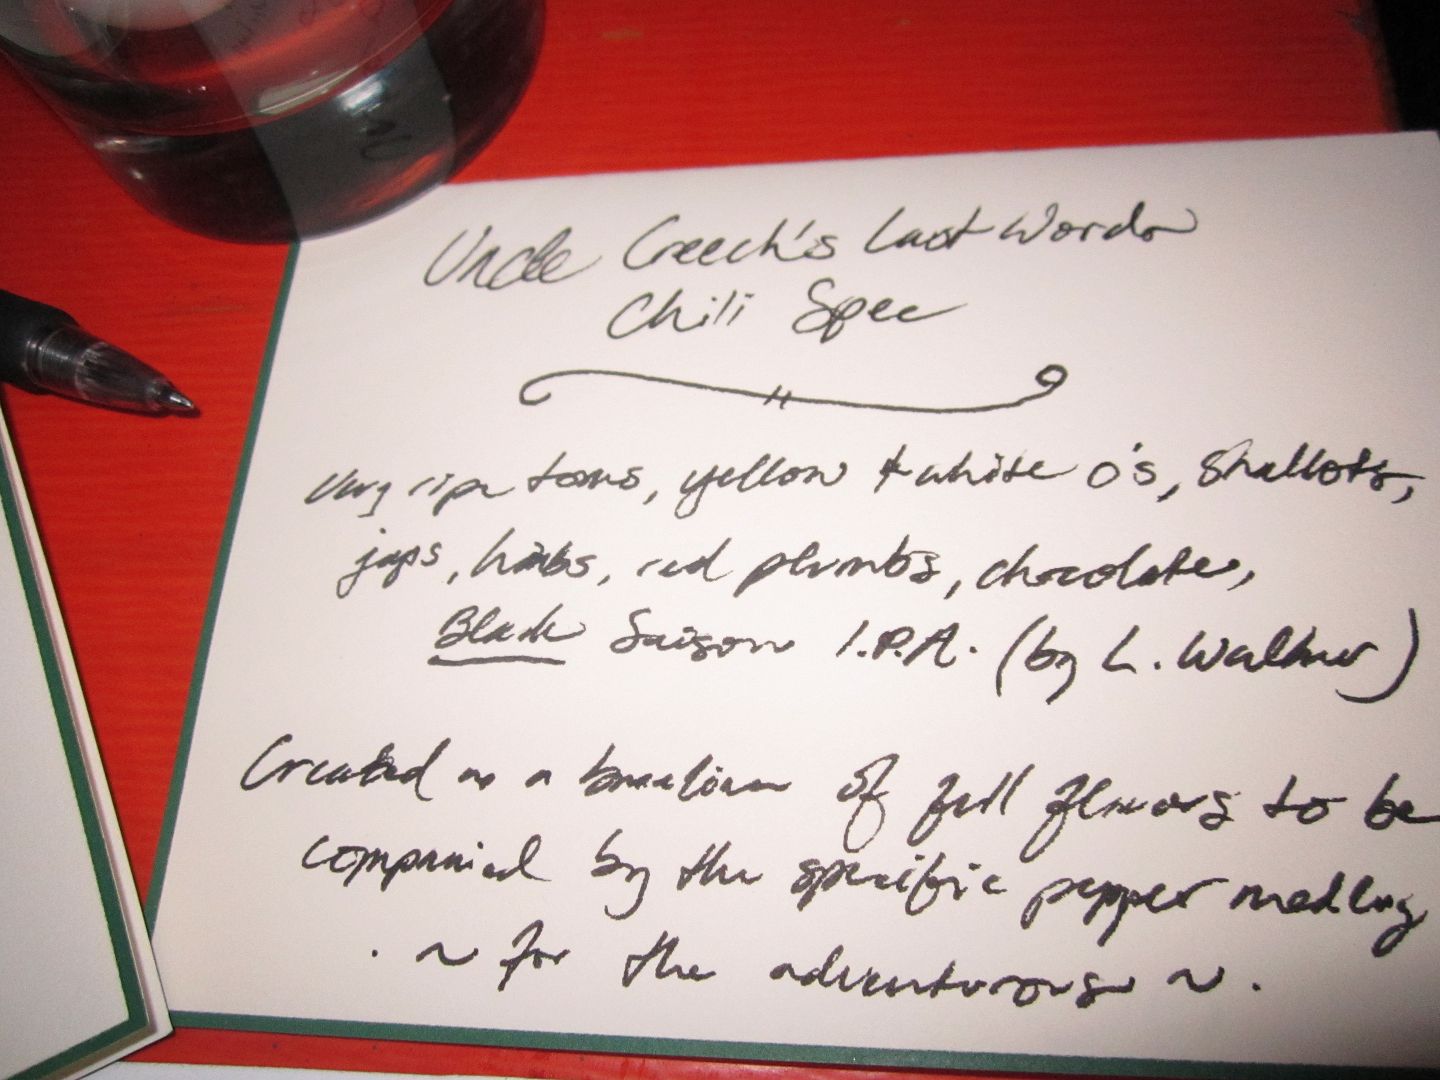 Uncle Creech's Last Words
Chili Spec
Very ripe toms, yellow & white o's, shallots,
japs, habs, red plumbs, chocolate,
Black Saison I.P.A. (by L. Walker)
Created as a of full flavors to be
companied by the specific pepper medley
. ~ for the adventurous ~ .